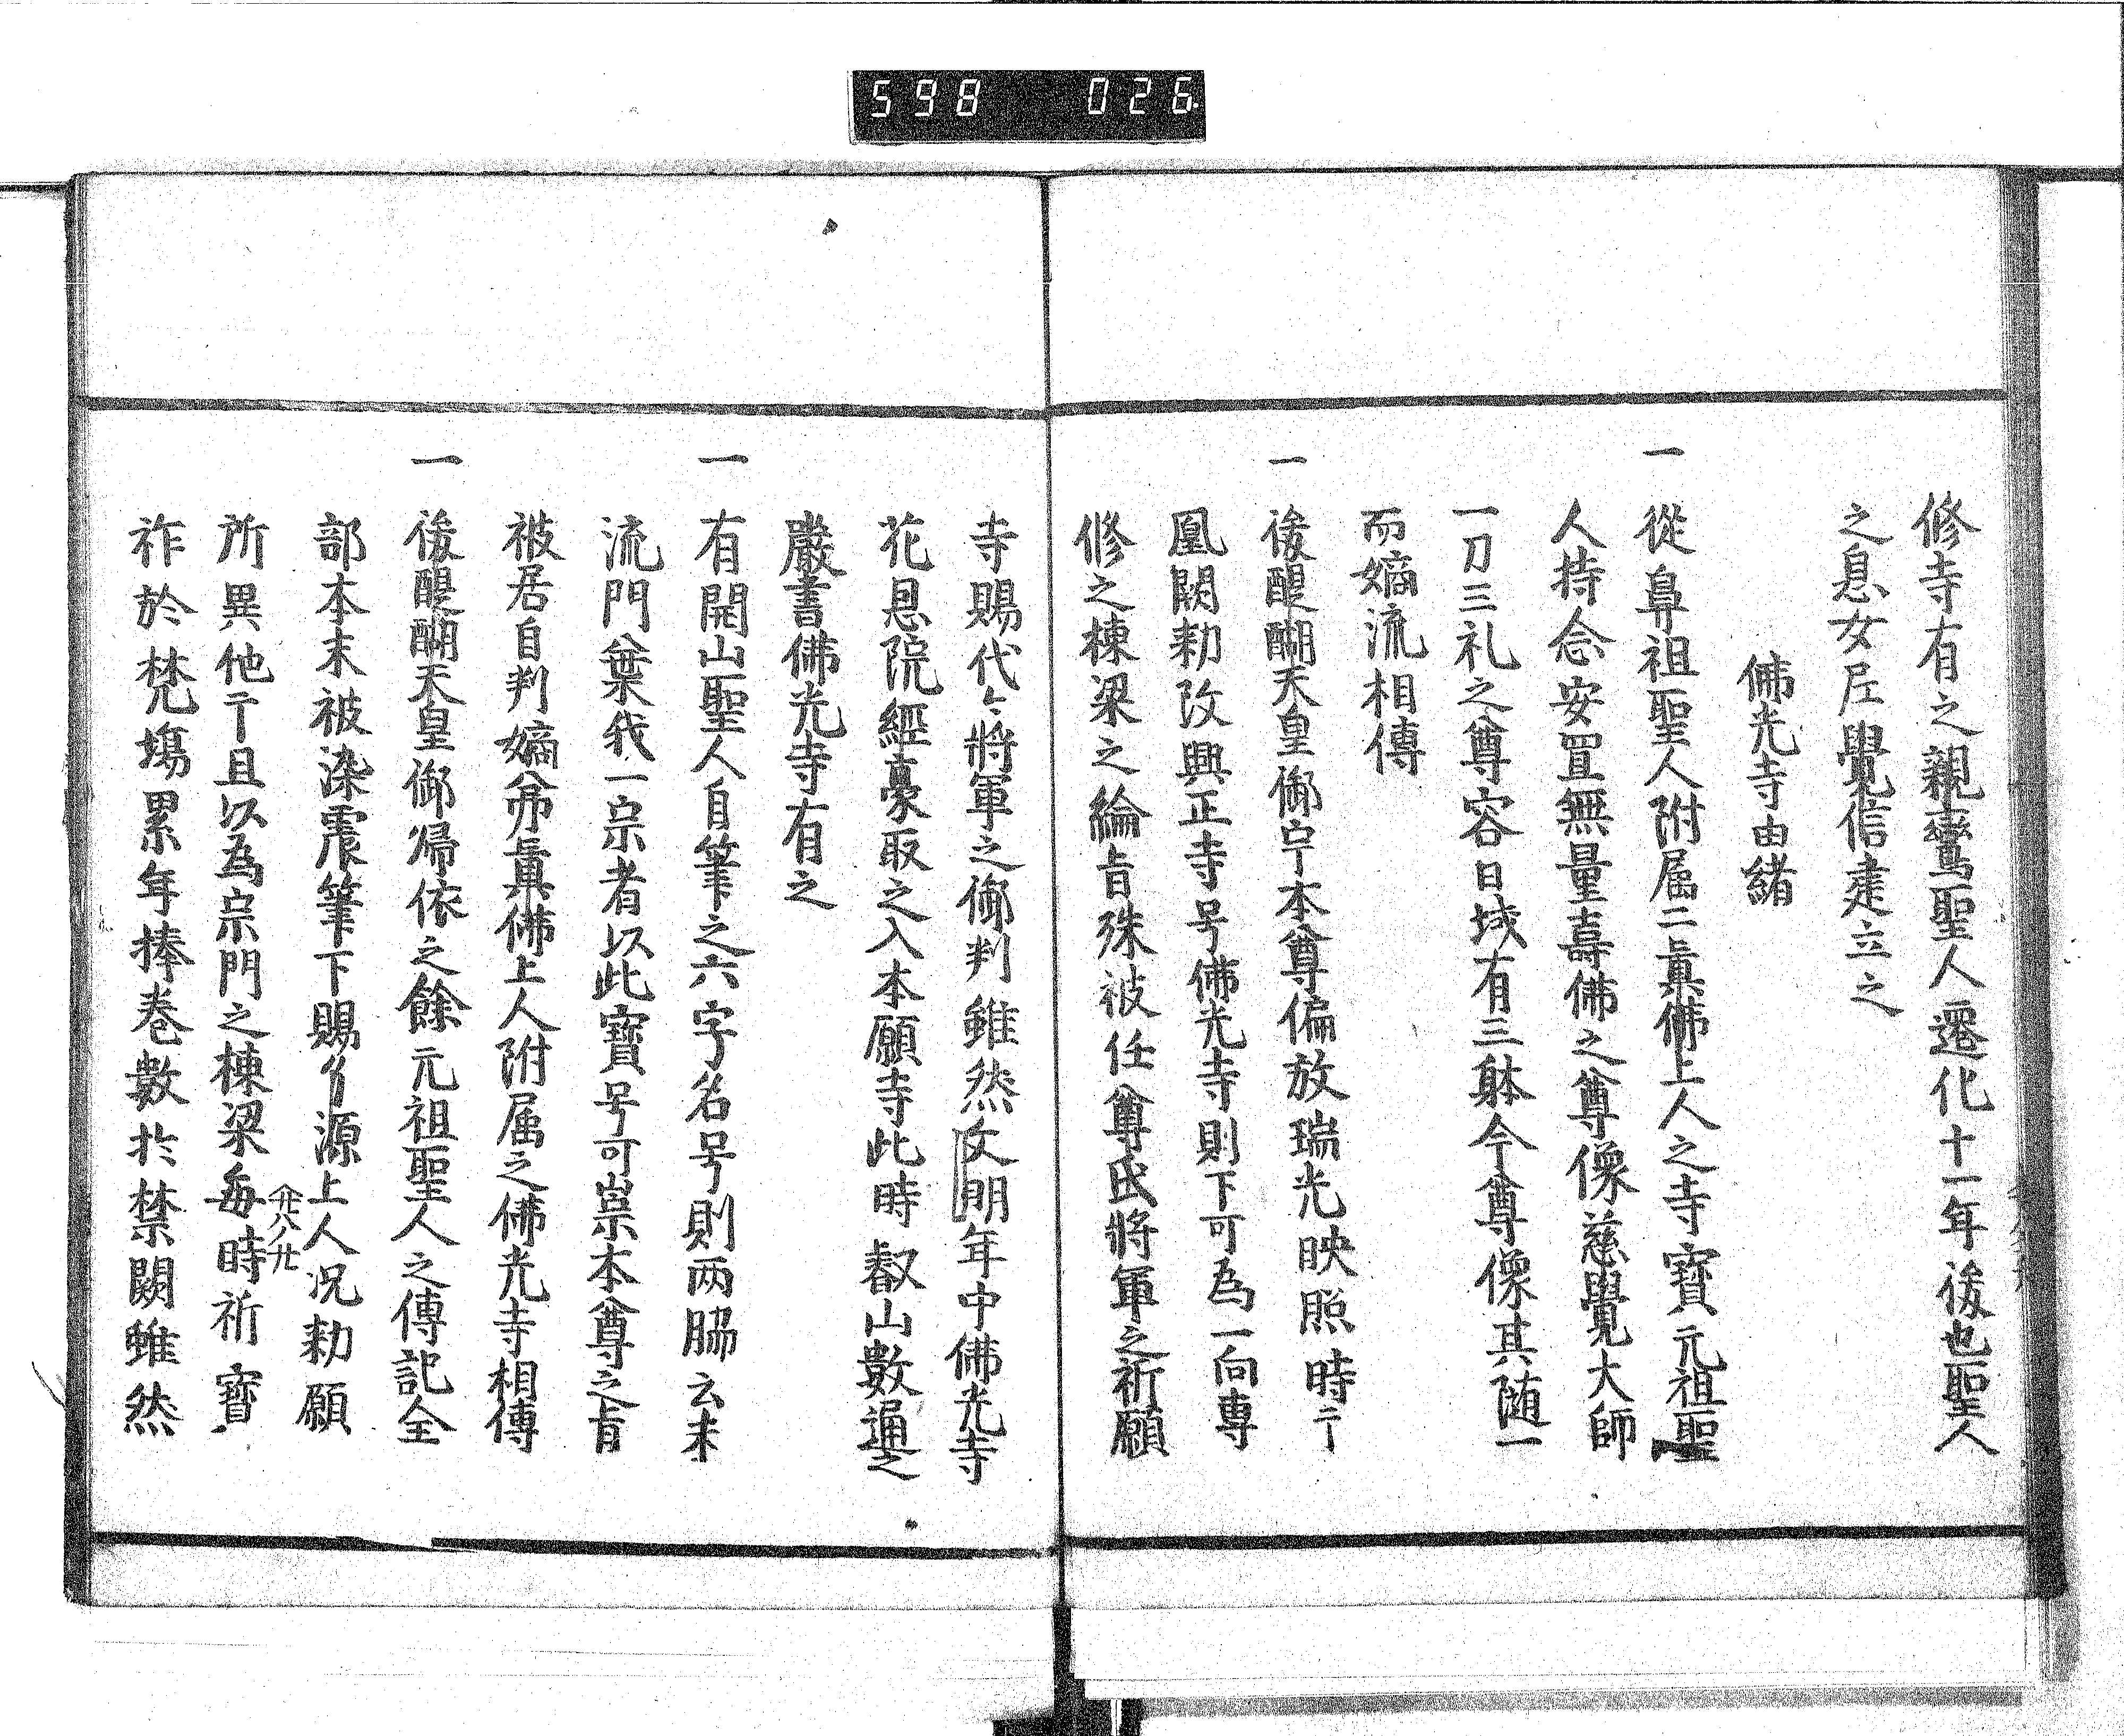 598 026
修寺有之親鸞聖人遷化十一年後也聖人
之息女尼覺信建立之
佛光寺由緒
一 從鼻祖聖人附屬二眞佛上人之寺寶元祖聖
人持念安置無量壽佛之尊像慈覺大師
一刀三礼之尊容日域有三躰今尊像其随一
而嫡流相傳
一 後醍醐天皇御宇本尊偏放瑞光映照時于
凰闕勅改興正寺号佛光寺則下可為一向専
修之棟梁之綸旨殊被任尊氏將軍之祈願
寺賜代々將軍之御判雖然文明年中佛光寺
花恩院經豪取之入本願寺此時叡山數通之
嚴書佛光寺有之
一 有開山聖人自筆之六字名号則两脇云末
流門葉我一宗者以此寶号可崇本尊之旨
被居自判嫡弟眞佛上人附属之佛光寺相傳
一 後醍醐天皇御帰依之餘元祖聖人之傳記全
部本末被染震筆下賜了源上人况勅願
所異他于且以為宗門之棟梁毎時祈寶
祚於梵場累年捧巻數於禁闕雖然